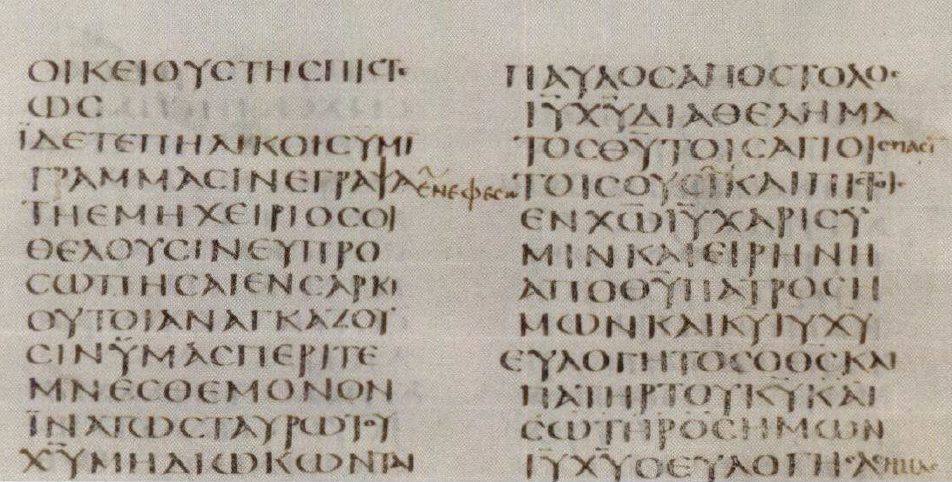 ΟΙΚΕΙΟΥϹΤΗϹΠΙϹΤΕ
ΩϹ
ΪΔΕΤΕΠΗΛΙΚΟΙϹΥΜΙ
ΓΡΑΜΜΑϹΙΝΕΓΡΑΨΑ
ΤΗΕΜΗΧΕΙΡΙΟϹΟΙ
ΘΕΛΟΥϹΙΝΕΥΠΡΟ
ϹΩΠΗϹΑΙΕΝϹΑΡΚΙ
ΟΥΤΟΙΑΝΑΓΚΑΖΟΥ
ϹΙΝΫΜΑϹΠΕΡΙΤΕ
ΜΝΕϹΘΕΜΟΝΟΝ
ΪΝΑΤΩϹΤΑΥΡΩΤΟΥ
Χ̅Υ̅ΜΗΔΙΩΚΩΝΤΑΙ
ΠΑΥΛΟϹΑΠΟϹΤΟΛΟϹ
Ι̅Υ̅Χ̅Υ̅ΔΙΑΘΕΛΗΜΑ
ΤΟϹΘ̅Υ̅ΤΟΙϹΑΓΙΟΙϹΠΑϹΙ
ΕΝΕΦΕϹΩ
ΤΟΙϹΟΥϹΙΚΑΙΠΙϹΤΟΙϹ
ΕΝΧ̅Ω̅Ι̅Υ̅ΧΑΡΙϹΥ
ΜΙΝΚΑΙΕΙΡΗΝΗ
ΑΠΟΘ̅Υ̅ΠΑΤΡΟϹΗ
ΜΩΝΚΑΙΚ̅Υ̅Ι̅Υ̅Χ̅Υ̅
ΕΥΛΟΓΗΤΟϹΟΘ̅Ϲ̅ΚΑΙ
ΠΑΤΗΡΤΟΥΚ̅Υ̅ΚΑΙ
ϹΩΤΗΡΟϹΗΜΩΝ
Ι̅Υ̅Χ̅Υ̅ΟΕΥΛΟΓΗϹΑϹΗΜΑϹ